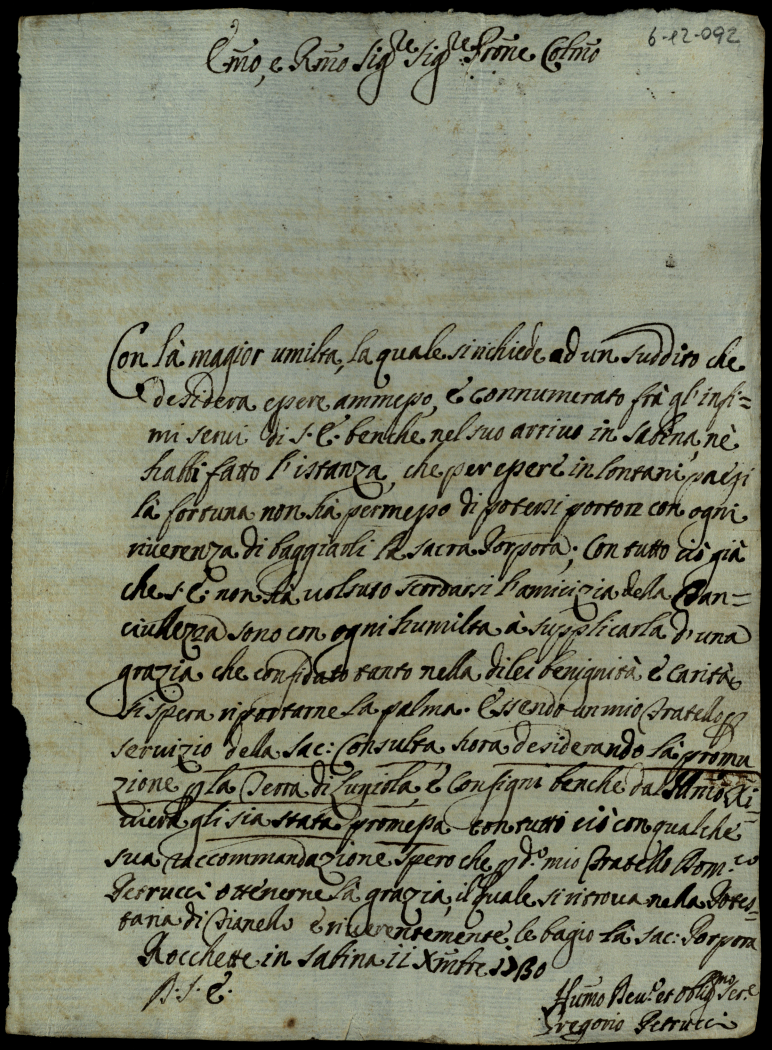 6-12-092
Emo, e Rmo Sigre Sigre Prone Colmo
Con là magior umiltà, la quale si richiede ad un suddito che
desidera essere ammesso, è connumerato frà gl'infi=
mi servi di S. E. benche nel suo arrivo in Sabina, nè
habbi fatto l'istanza, che per essere in lontani paesi
là fortuna non hà permesso di potersi portare con ogni
riverenza di baggiarli la sacra Porpora; Con tutto ciò già
che S. E. non hà volsuto scordarsi l'amicizia della Fan=
ciullezza sono con ogni humiltà à supplicarla d'una
grazia che confidato tanto nella di lei benignità è carità
si spera riportarne la palma. Essendo un mio Fratello p
servizio della Sac: Consulta hora desiderando là promu
zione p la Terra di è Consigni benche dal
gli sia stata promessa con tutto ciò con qualche
sua raccommandazione spero che p do mio Fratello Domco
Petrucci ottenerne là grazia, il quale si ritrova nella Potes=
taria di Pianello è riverentemente le bagio là Sac: Porpora
Rocchette in Sabina 11 Xmbre 1730
D. S. E.
Humo Devo et Obligmo Sere
Gregorio Petrucci